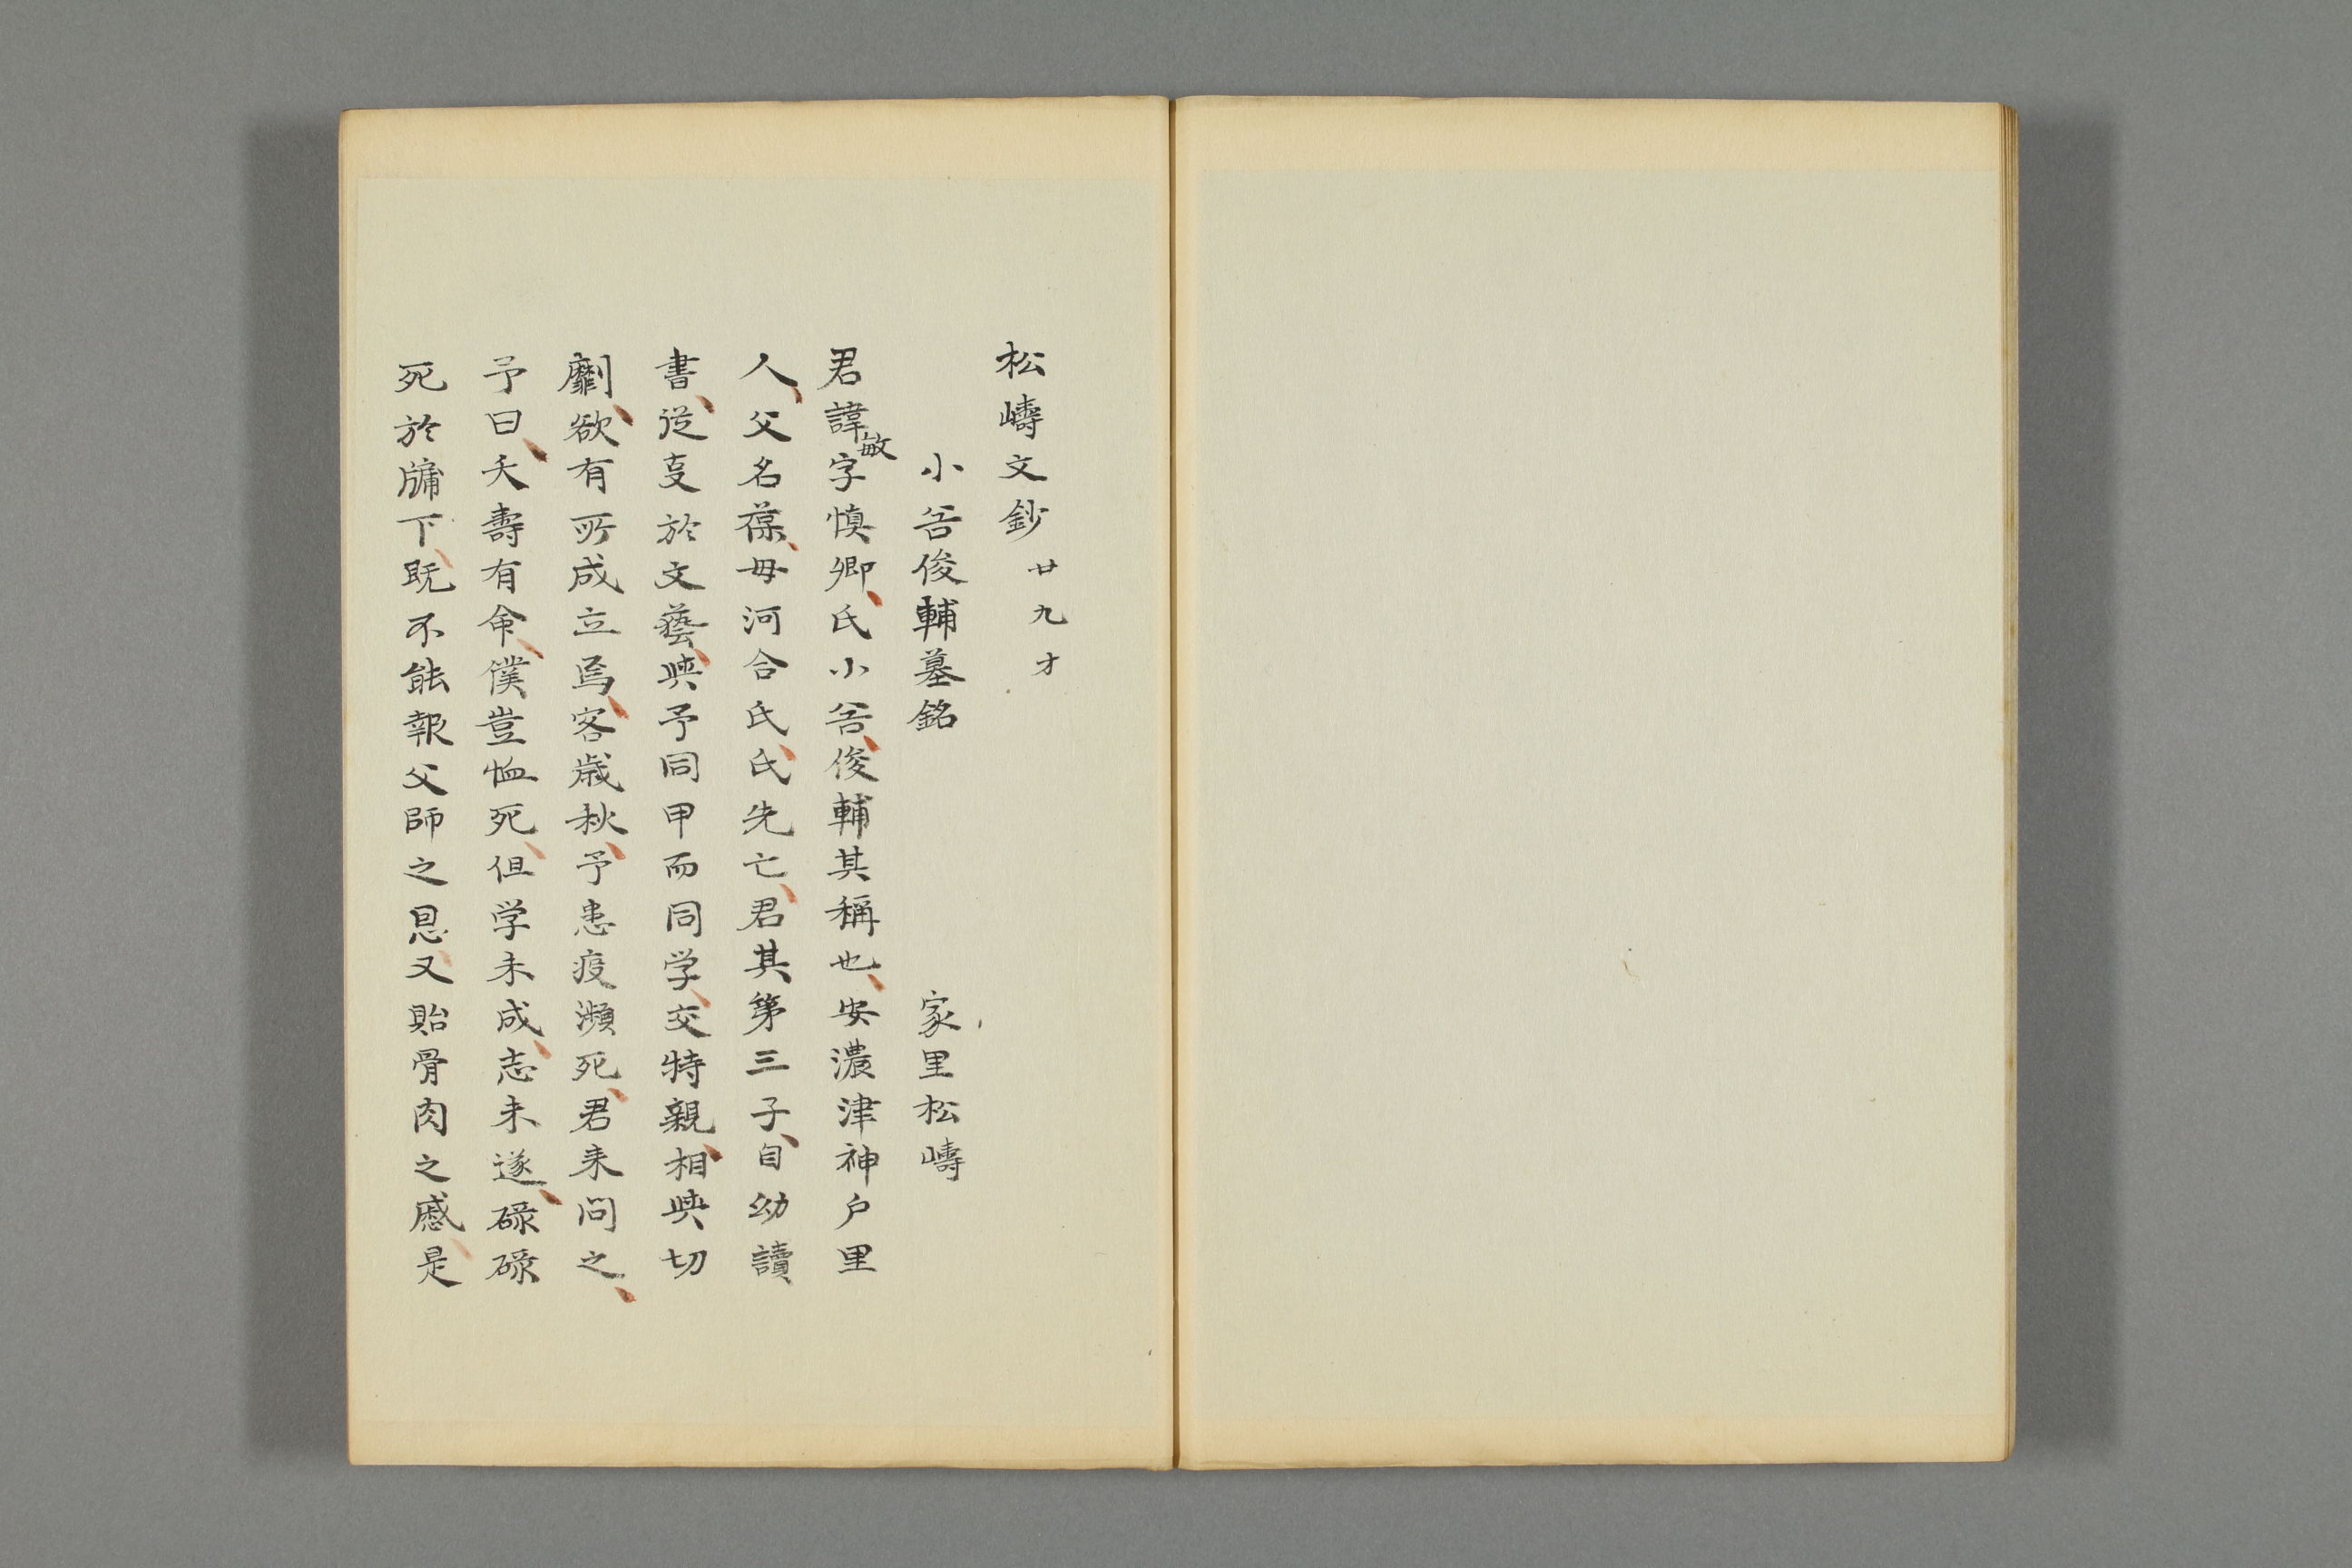 松嶹文鈔 廿九才
小谷俊輔墓銘 家里松嶹
君諱敏字慎卿、氏小谷、俊輔其稱也、安濃津神戸里
人、父名葆、母河合氏、氏先亡、君其第三子、自幼讀
書、従叓於文藝、與予同甲而同学、交特親、相與切
劘、欲有所成立焉、客歳秋、予患疫瀕死、君来問之、
予曰、夭壽有命、僕豈恤死、但学未成、志未遂、碌碌
死於牖下、既不能報父師之恩、又貽骨肉之慼、是